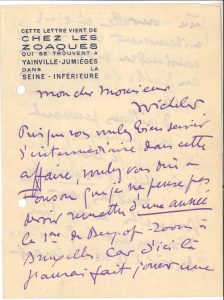 CETTE LETTRE VIENT DE
CHEZ LES
ZOAQUES
QUI SE TROUVENT A
YAINVILLE-JUMIÈGES
DANS LA
SEINE-INFÉRIEURE
mon cher Monsieur
Puisque vous voulez bien servir
d'intermédiaire dans cette
affaire, voulez vous dire à
que je ne pense pas
devoir remettre d'une année
la 1ère de
Bruxelles. Car d'ici là
j'aurai fait jouer une